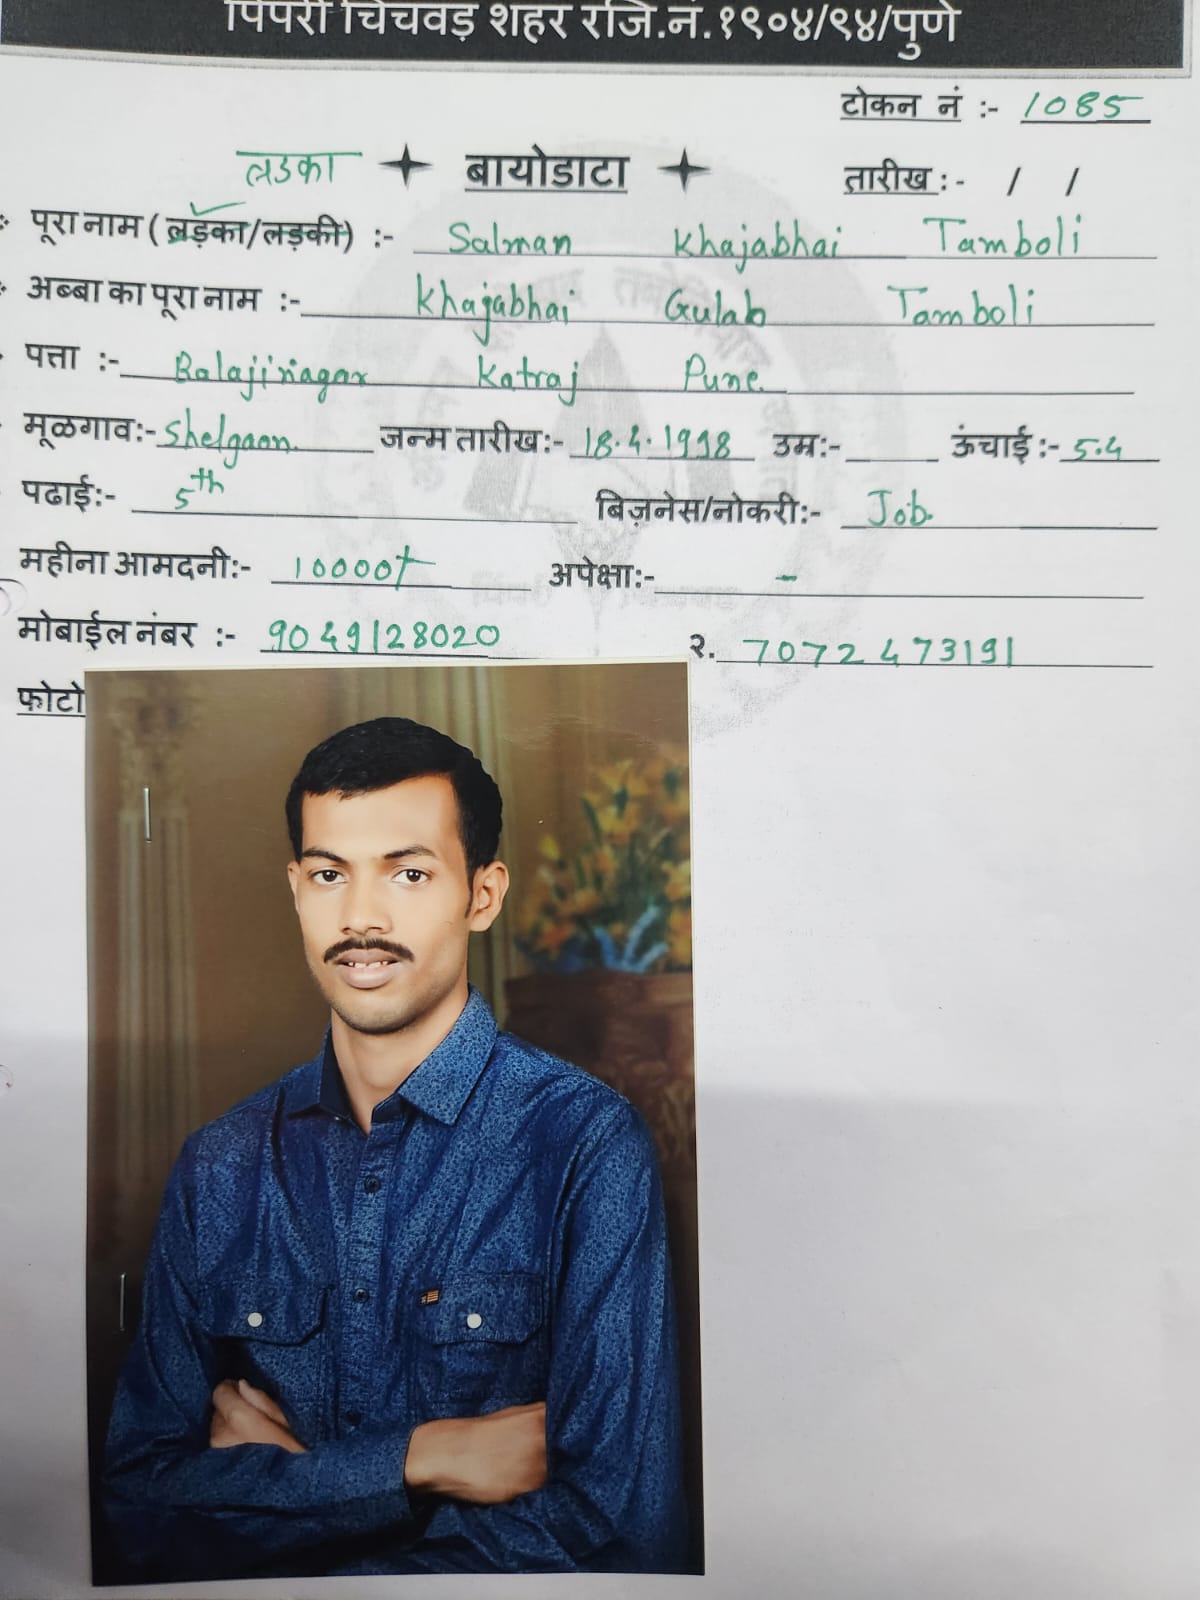 पिंपरी चिंचवड़ शहर रजि.नं.१९०४/९४/पुणे
टोकन नं :- 1085
लडका बायोडाटा तारीख :- / /
पूरा नाम (लड़का/लड़की) :- Salman Khajabhai Tamboli
अब्बा का पूरा नाम :- Khajabhai Gulab Tamboli
पत्ता :- Balajinagar Katraj Pune
मूळगाव:- Shelgaon. जन्म तारीख:- 18.4.1998 उम्र:- ऊंचाई :- 5.4
पढाई:- 5th बिज़नेस/नोकरी:- Job.
महीना आमदनी:- 10000+ अपेक्षा:- -
मोबाईल नंबर :- 9049128020 २. 7072473191
फोटो